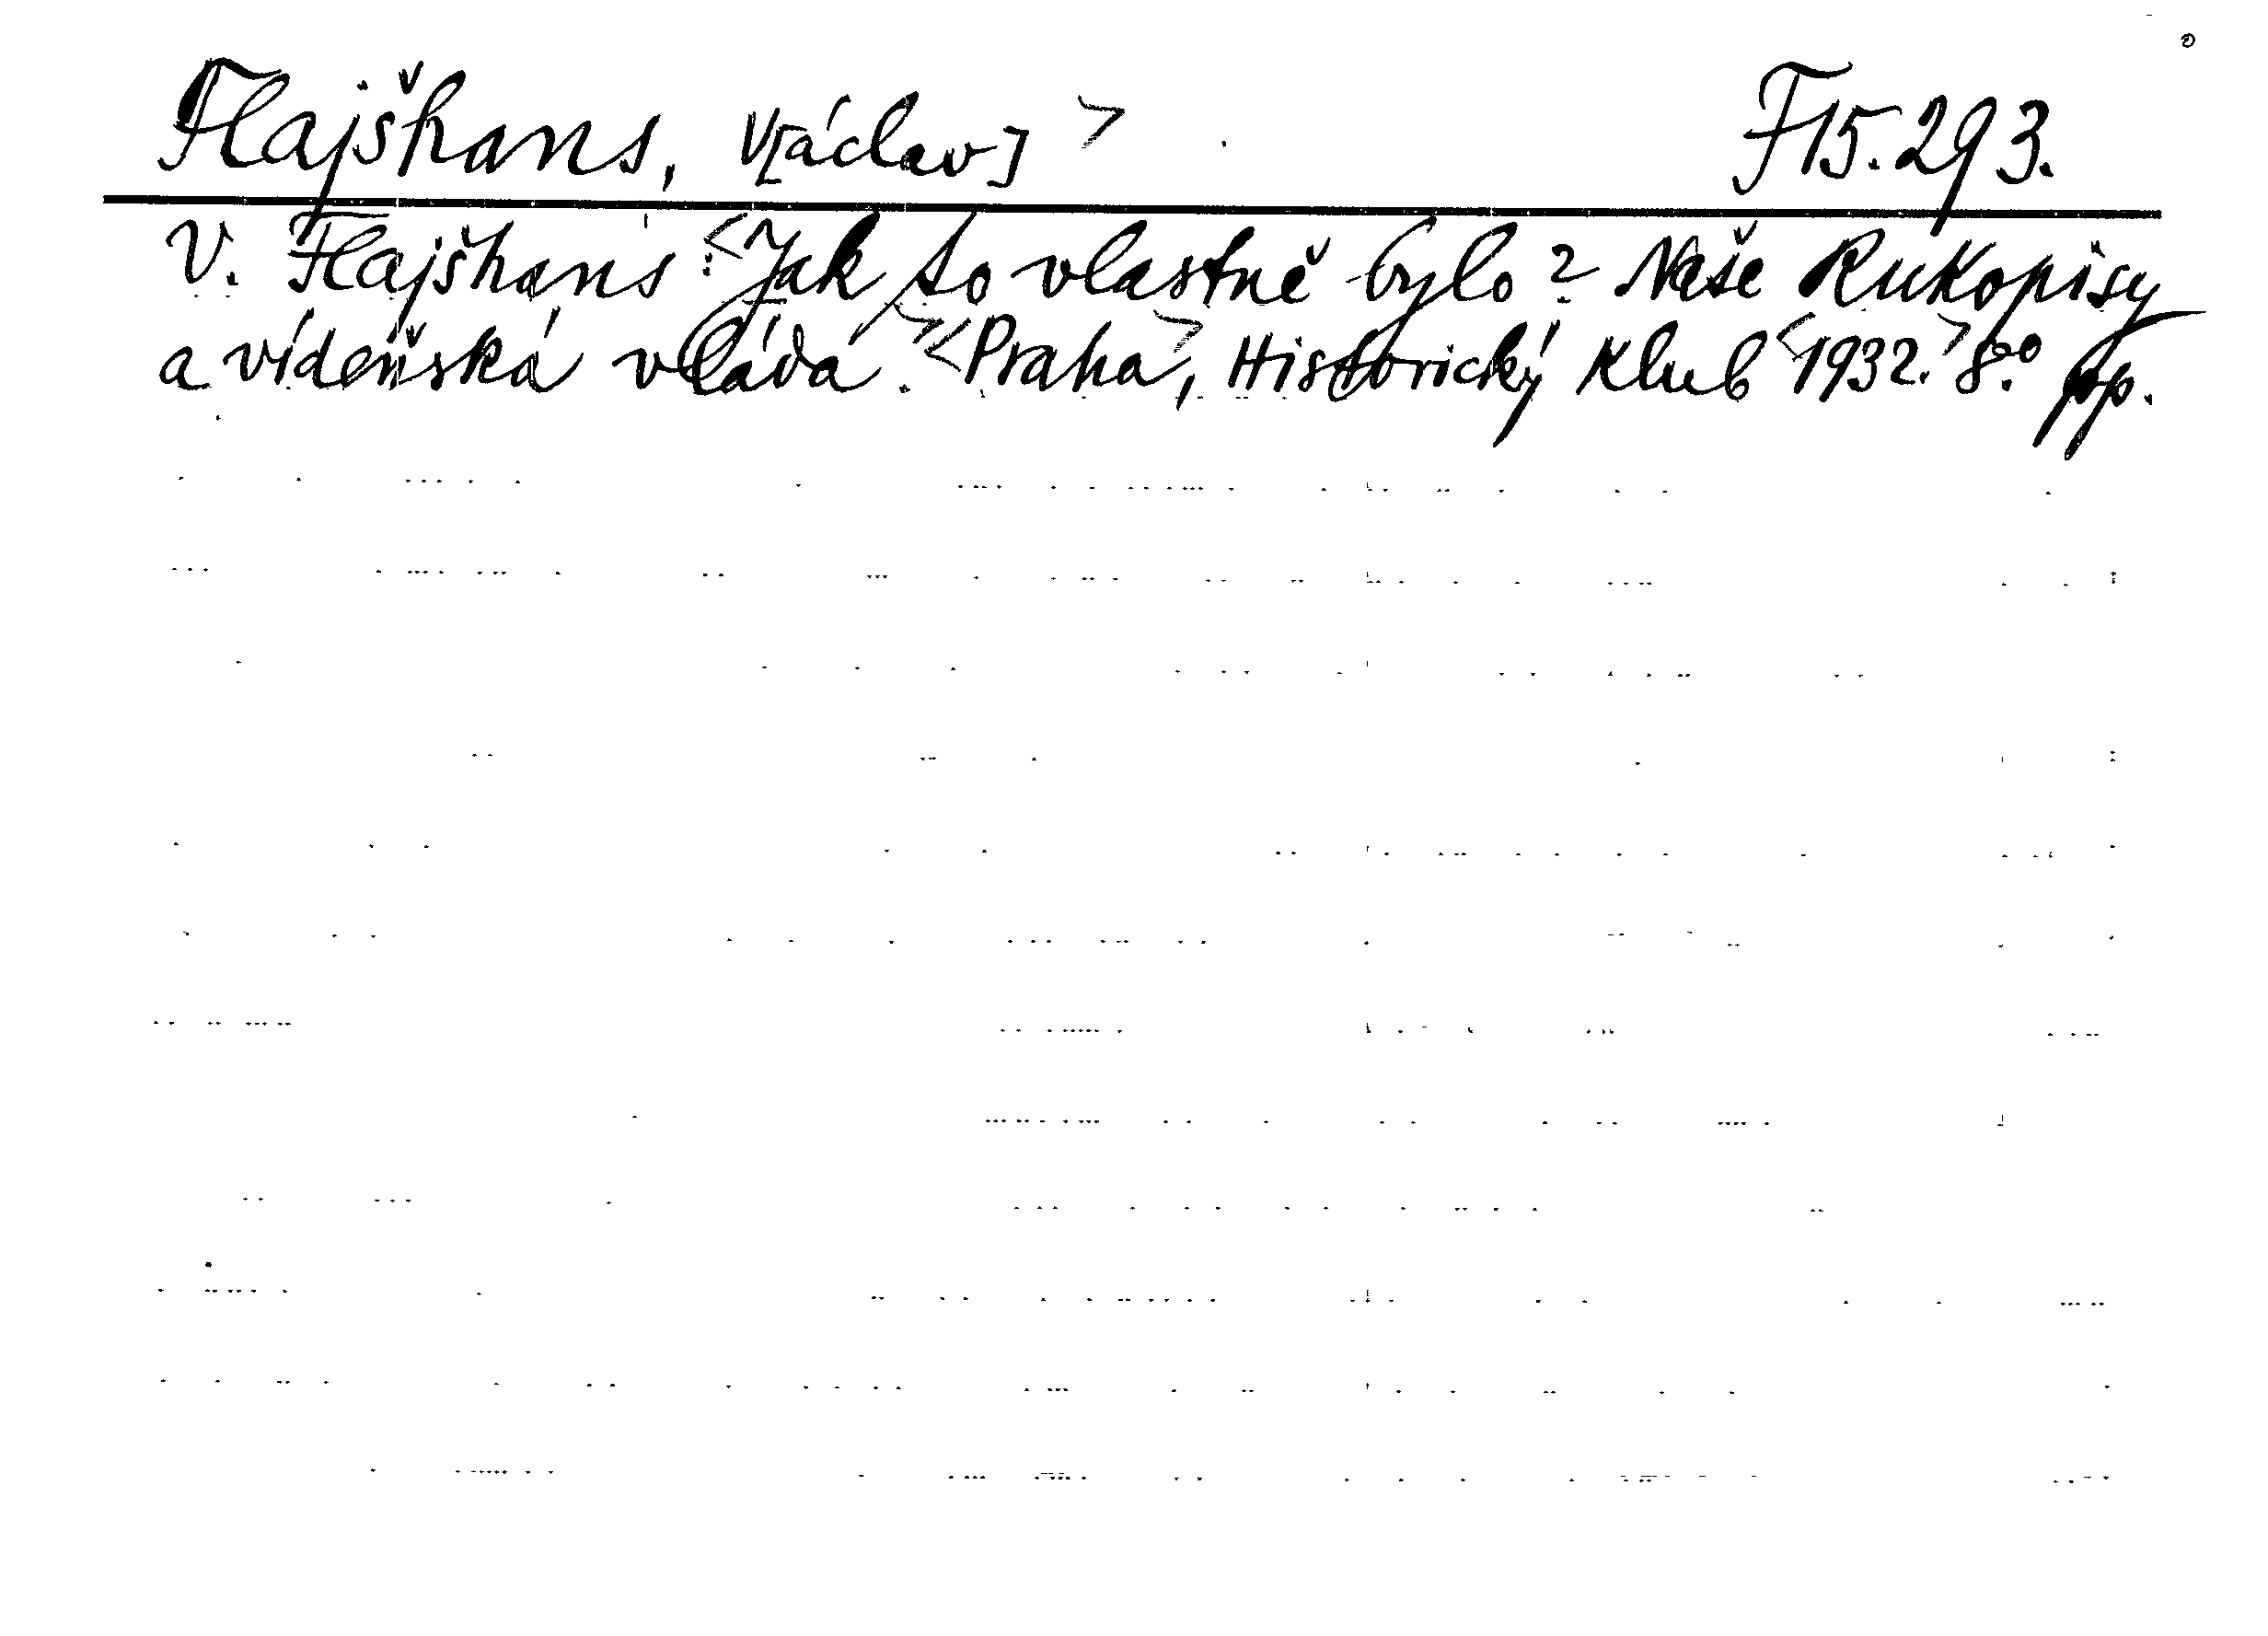 Flajšhans, V[áclav] > F 15.293.
V. Flajšhans: <Jak to vlastně bylo? Naše Rukopisy
a vídeňská vláda.> <Praha>, Historický Klub <1932.> 8.° pp.